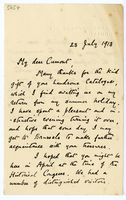 5054
23 July 1913
My dear Cumont,
Many thanks for the kind
gift of your handsome Catalogue,
which I find waiting me on my
return from my summer holiday.
I have spent a pleasant and in-
structive evening turning it over
and hope that some day, I may
get to Brussels to make further
acquaintance with your treasures.
I hoped that you might be
here in April at the time of the
Historical Congress. We had a
number of distinguished visitors